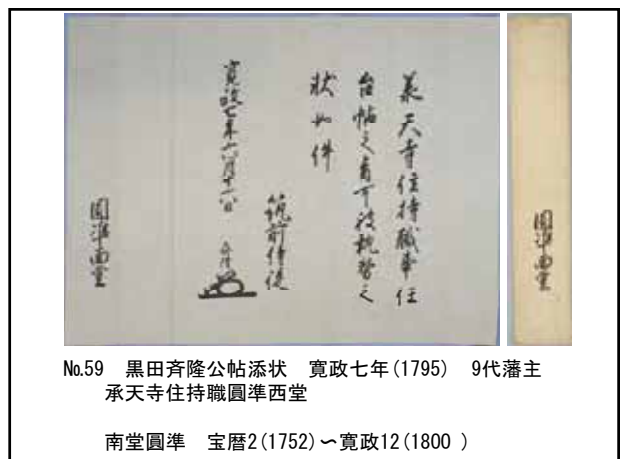 承天寺住持職事任
台帖之旨可被執務之
状如件
寛政七年六月十一日
筑前侍従
圓準西堂
圓準西堂
No.59 黒田斉隆公帖添状 寛政七年(1795) 9代藩主
承天寺住持職圓準西堂
南堂圓準 宝暦2(1752)〜寛政12(1800 )